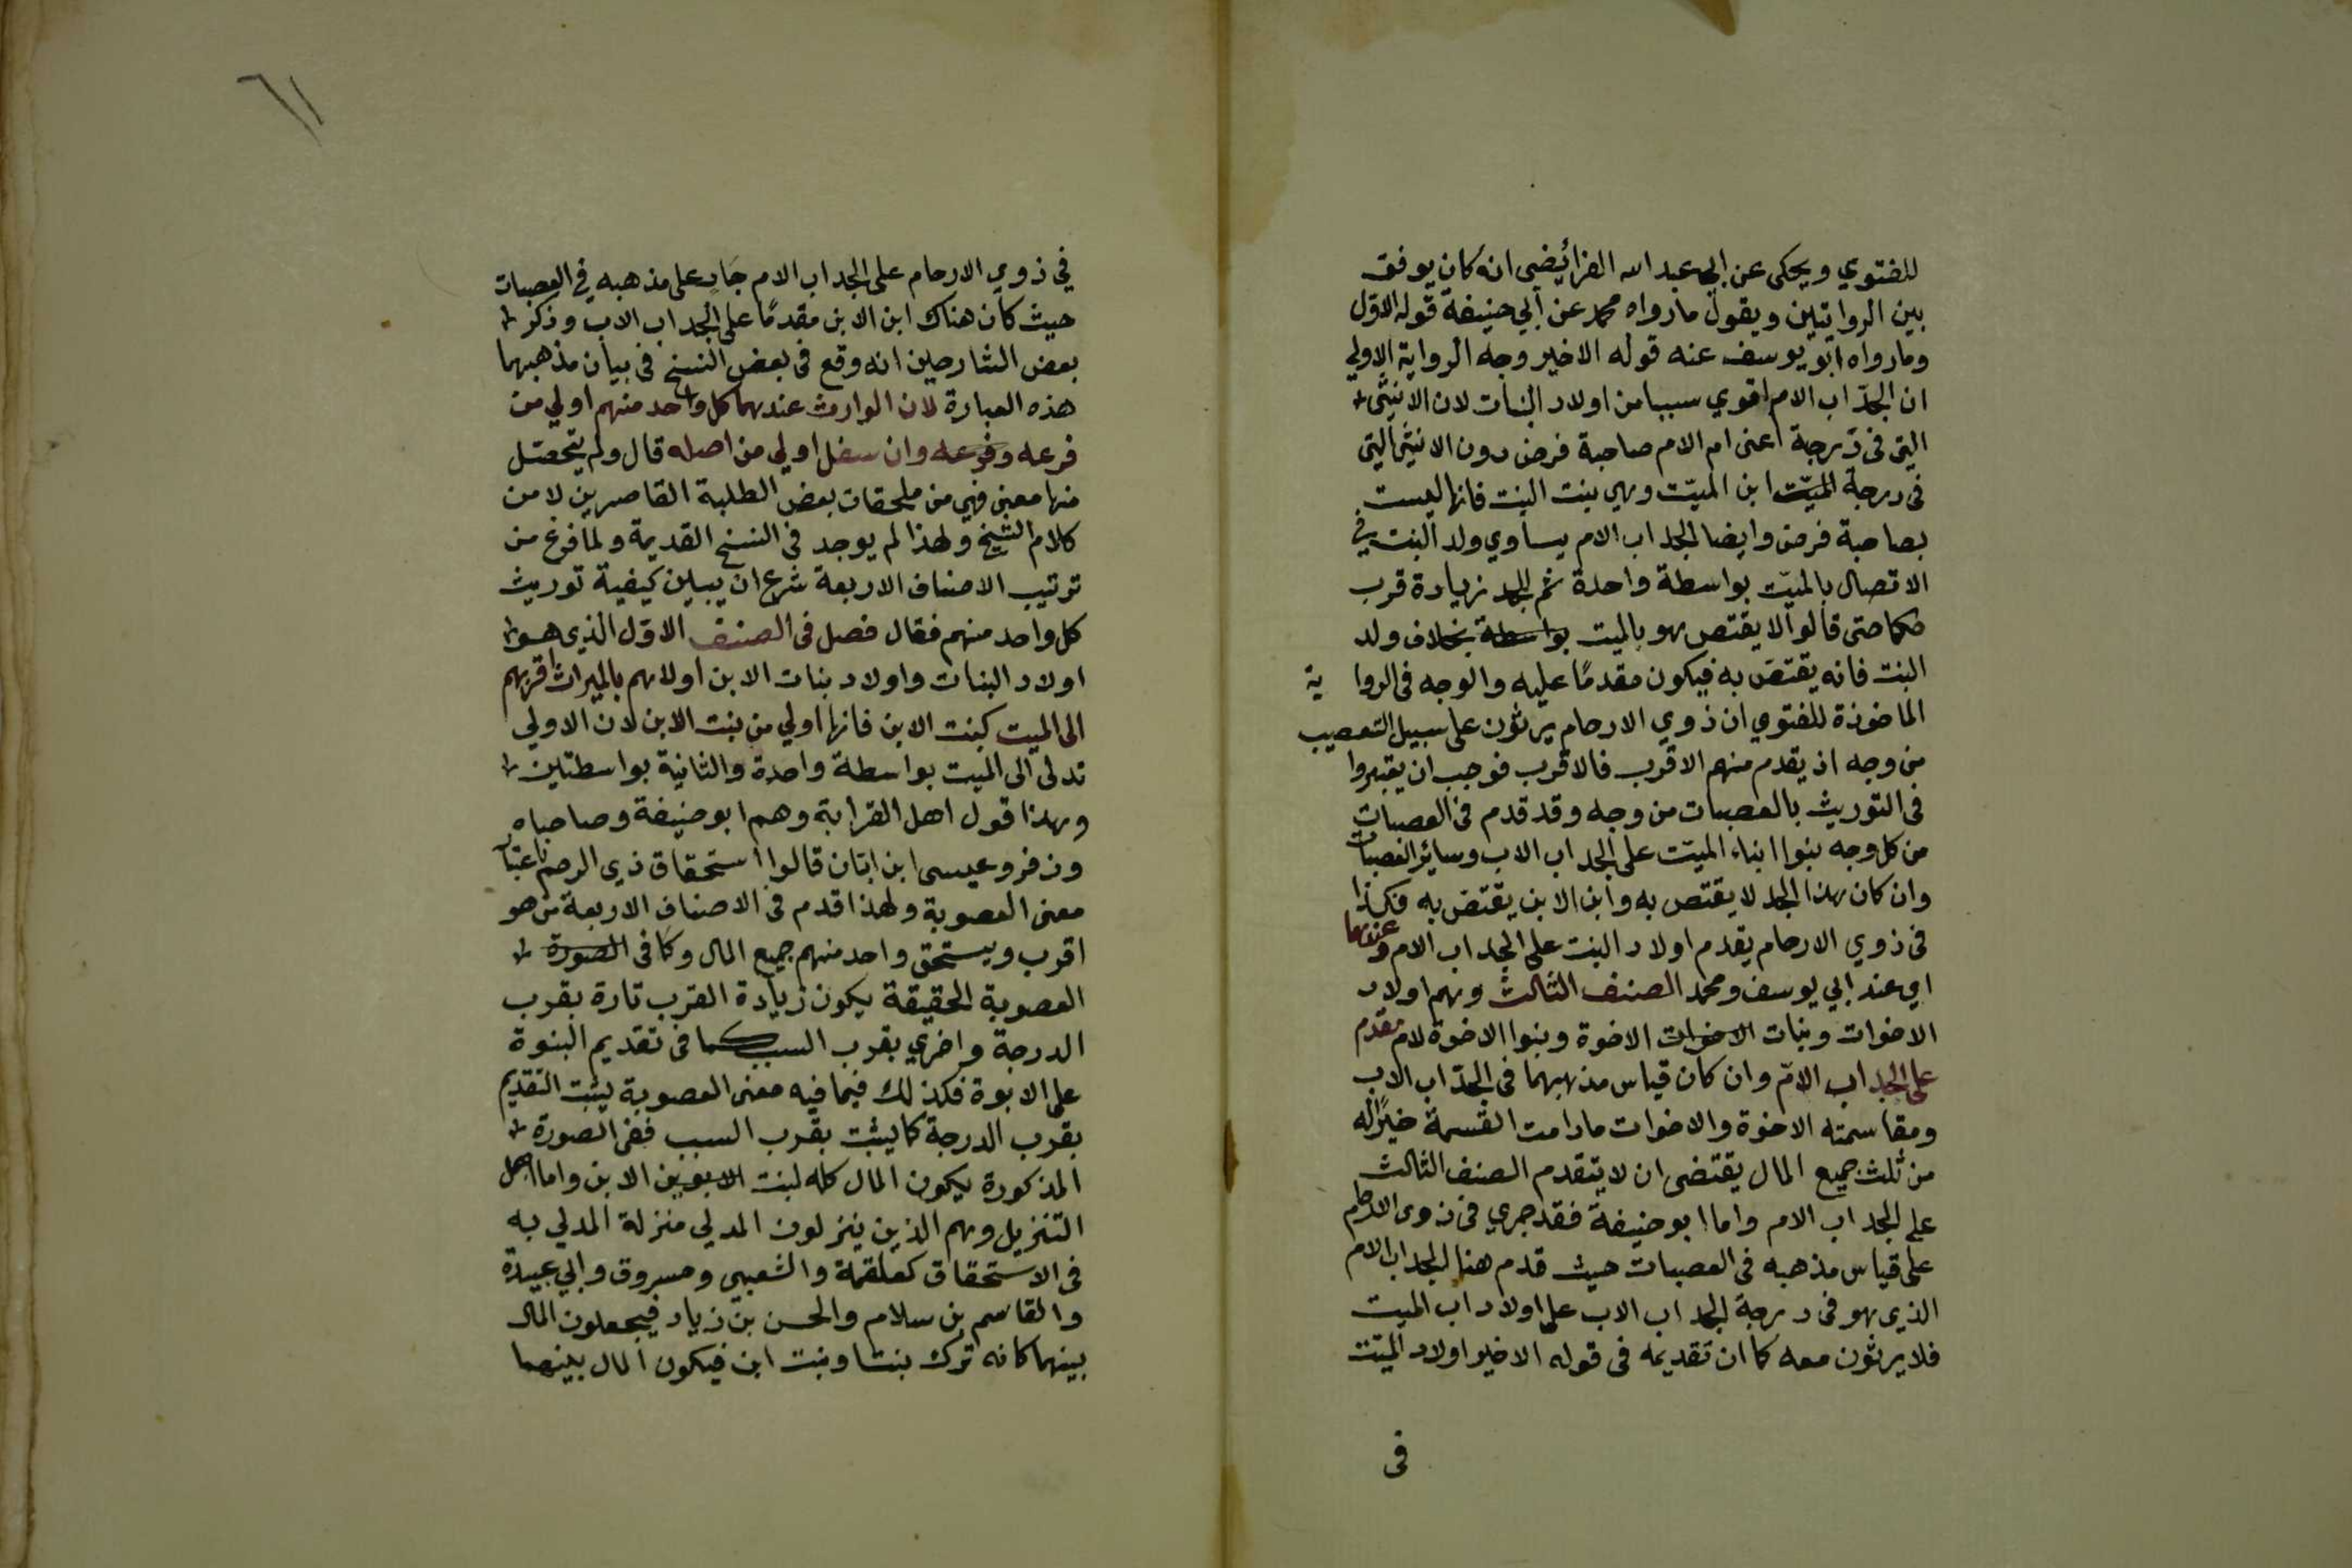 للفتوي ويحكى عن ابي عبد الله الفرائيضي انه كان يوفق
بين الروايتين ويقول ما رواه محمد عن ابي حنيفة قوله الاوّل
وما رواه ابو يوسف عنه قوله الاخير وجه الرواية الاولي
ان الجدّ اب الام اقوي سببا من اولاد البنات لان الانثى
التي في درجة اعنى ام الام صاحبة فرض دون الانثى التي
في درجة الميّت ابن الميّت وهي بنت البنت فانها ليست
بصاحبة فرض وايضا الجد اب الام يساوي ولد البنت في
الاتصال بالميّت بواسطة واحدة ثم للجد زيادة قرب
حكما حتى قالوا لا يقتص هو بالميت بواسطة بخلاف ولد
البنت فانه يقتصّ به فيكون مقدمًا عليه والوجه في الرواية
الماخوذة للفتوي ان ذوي الارحام يرثون على سبيل التعصيب
من وجه اذ يقدم منهم الاقرب فالاقرب فوجب ان يقبروا
في التوريث بالعصبات من وجه وقد قدم في العصبات
من كل وجه بنوا ابناء الميّت على الجد اب الاب وسائر العصبات
وان كان هذا الجد لا يقتص به وابن الابن يقتصّ به فكذا
في ذوي الارحام يقدم اولاد البنت على الجد اب الام وعندهما
اي عند ابي يوسف ومحمد الصنف الثالث وهم اولاد
الاخوات وبنات الاخوات الاخوة وبنوا الاخوة لام مقدم
على الجد اب الامّ وان كان قياس مذهبهما في الجدّ اب الاب
ومقاسمته الاخوة والاخوات ما دامت القسمة خيرًا له
من ثلث جميع المال يقتضى ان لا يتقدم الصنف الثالث
على الجد اب الام واما ابو حنيفة فقد جري في ذوى الارحام
على قياس مذهبه في العصبات حيث قدم هنا الجد اب الام
الذي هو في درجة الجد اب الاب على اولاد اب الميت
فلا يرثون معه كما ان تقديمه في قوله الاخير اولاد الميّت
في
٦١
في ذوي الارحام على الجد اب الام جَارٍ على مذهبه في العصبات
حيث كان هناك ابن الابن مقدمًا على الجد اب الاب وذكر
بعض الشارحين انه وقع في بعض النسخ في بيان مذهبهما
هذه العبارة لان الوارث عندهما كل واحد منهم اولي من
فرعه وفرعه وان سفل اولي من اصله قال ولم يتحصّل
منها معنى فهي من ملحقات بعض الطلبة القاصرين لا من
كلام الشيخ ولهذا لم يوجد في النسخ القديمة ولما فرغ من
ترتيب الاصناف الاربعة شرع ان يبين كيفية توريث
كل واحد منهم فقال فصل في الصنف الاوّل الذي هو
اولاد البنات واولاد بنات الابن اولاهم بالميراث اقربهم
الى الميت كبنت الابن فانها اولي من بنت الابن لان الاولي
تدلى الى الميت بواسطة واحدة والثانية بواسطتين
وهذا قول اهل القرابة وهم ابو حنيفة وصاحباه
وزفر وعيسى ابن ابّان قالوا استحقاق ذي الرحم باعتبار
معنى العصوبة ولهذا قدم في الاصناف الاربعة من هو
اقرب ويستحق واحد منهم جميع المال وكما في الصورة
العصوبة الحقيقة يكون زيادة القرب تارة بقرب
الدرجة واخري بقرب السبب كما في تقديم البنوة
على الابوة فكذلك فيما فيه معنى العصوبة يثبت التقديم
بقرب الدرجة كما يثبت بقرب السبب ففى الصورة
المذكورة يكون المال كله لبنت الابوين الابن واما اهل
التنزيل وهم الذين ينزلون المدلي منزلة المدلي به
في الاستحقاق كعلقمة والشعبى ومسروق وابي عبيدة
والقاسم بن سلام والحسن بن زياد فيجعلون المال
بينهما كانه ترك بنتا وبنت ابن فيكون المال بينهما